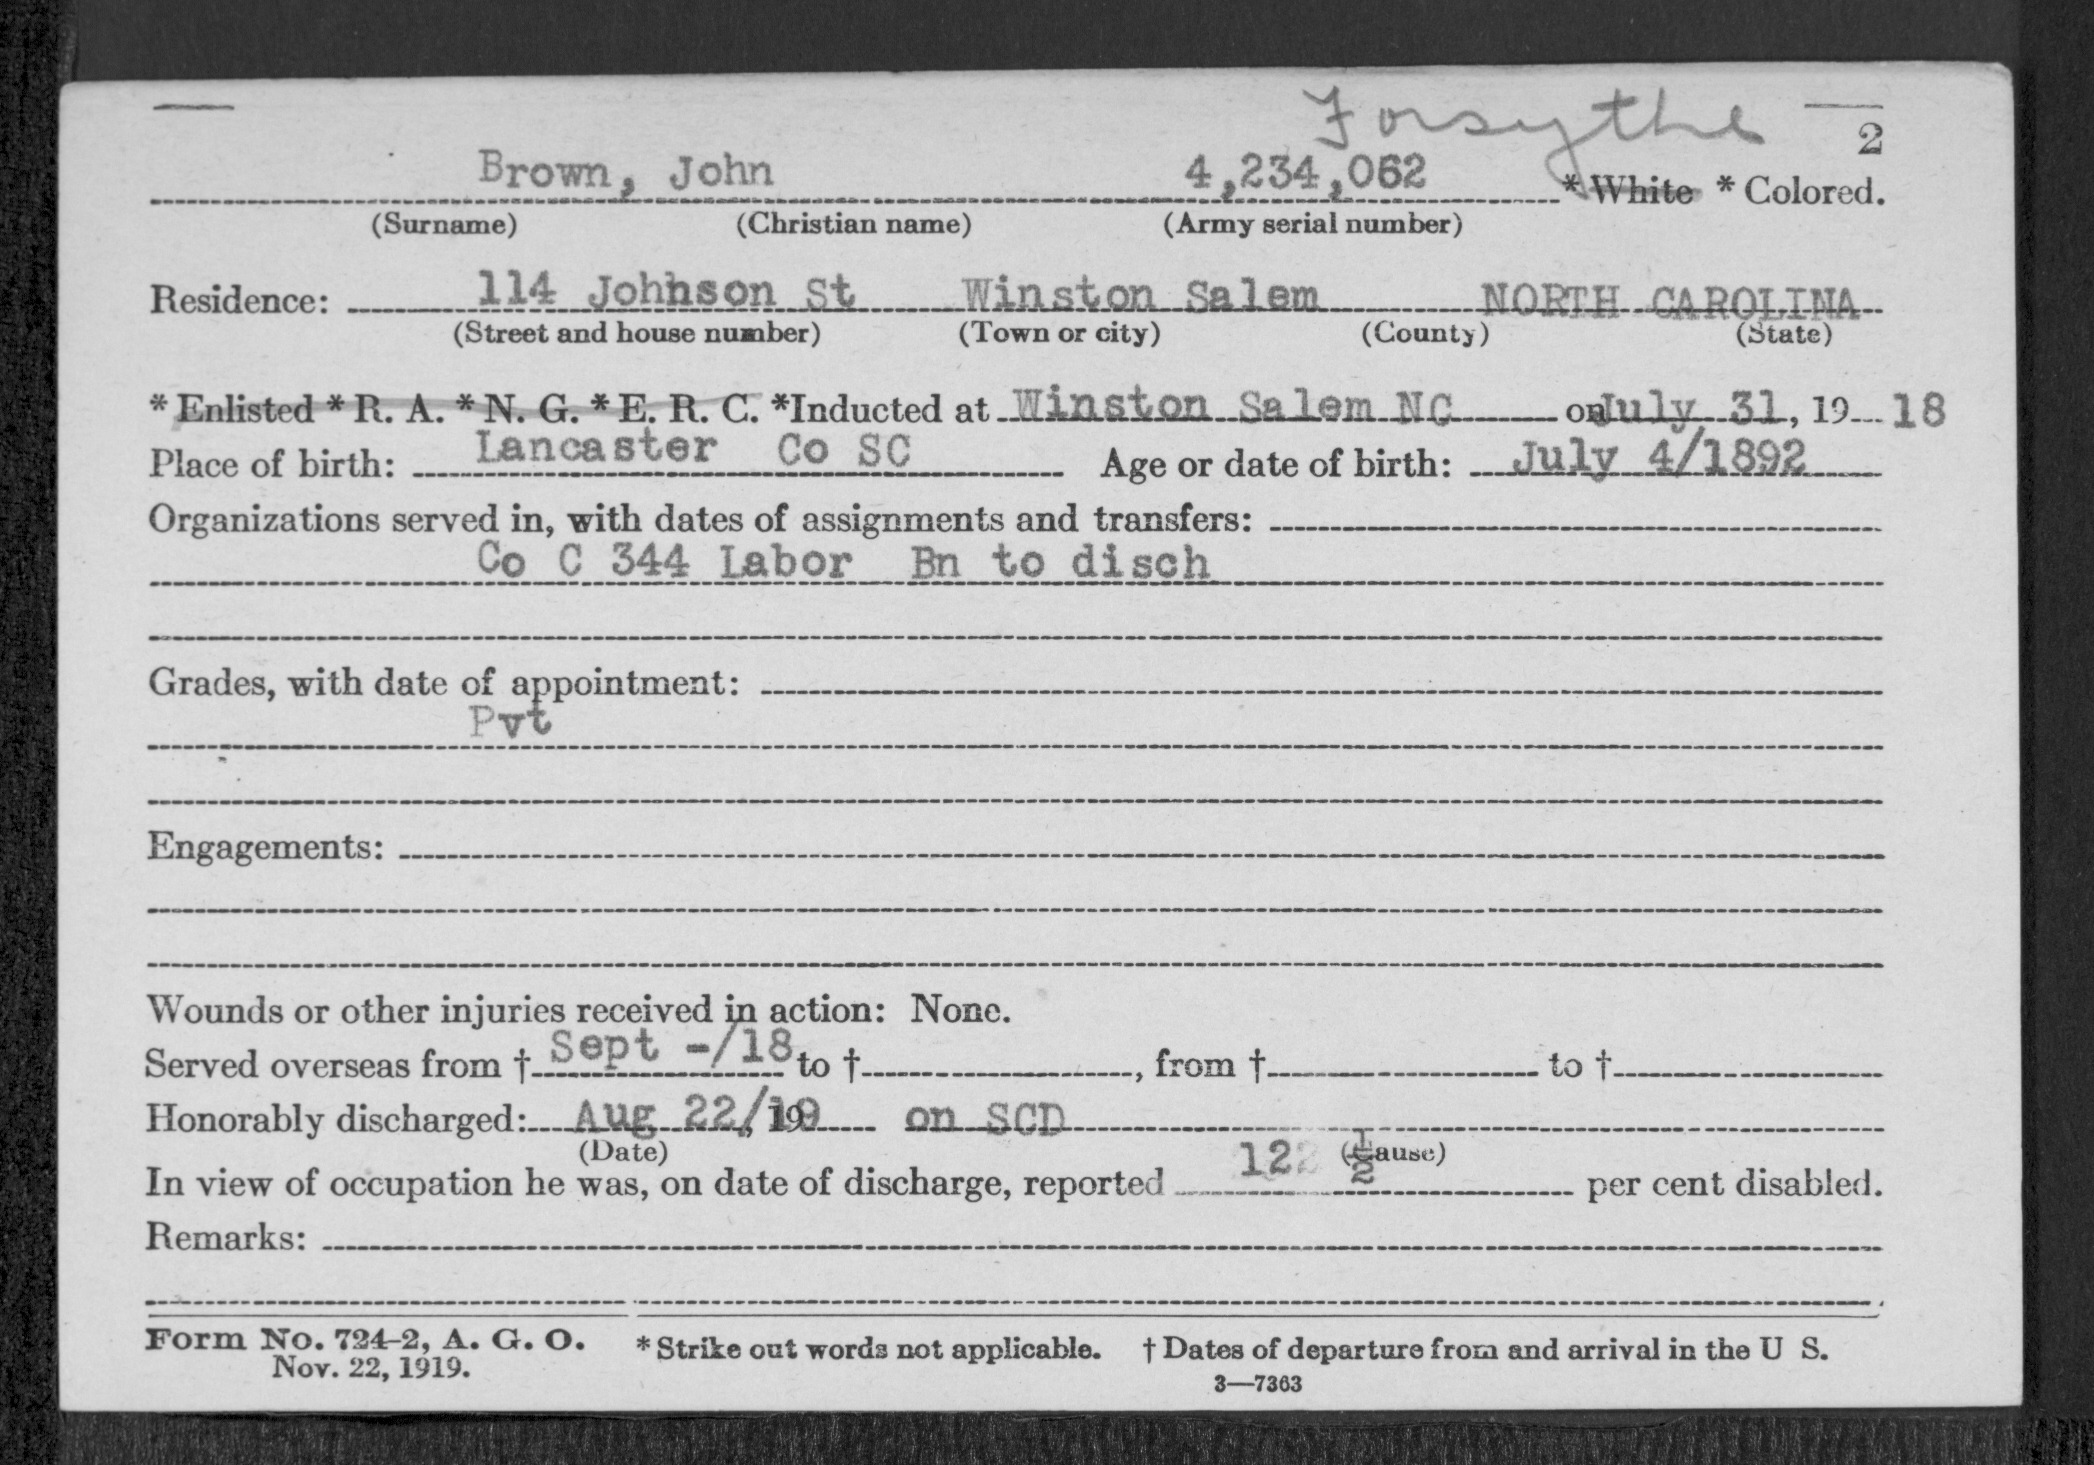 Forsythe
2
Brown, John 4,234,062 * White * Colored.
(Surname) (Christian name) (Army serial number)
Residence: 114 Johnson St Winston Salem NORTH CAROLINA
(Street and house number) (Town or city) (County) (State)
* Enlisted * R. A. * N. G. * E. R. C. *Inducted at Winston Salem NC on July 31, 19 18
Place of birth: Lancaster Co SC Age or date of birth: July 4/1892
Organizations served in, with dates of assignments and transfers:
Co C 344 Labor Bn to disch
Grades, with date of appointment:
Pvt
Engagements:
Wounds or other injuries received in action: None.
Served overseas from † Sept -/18 to †, from † to †
Honorably discharged: Aug 22/19 on SCD
(Date) (Cause)
In view of occupation he was, on date of discharge, reported 12 1/2 per cent disabled.
Remarks:
Form No. 724-2, A. G. O. * Strike out words not applicable. † Dates of departure from and arrival in the U S.
Nov. 22, 1919. 3—7363